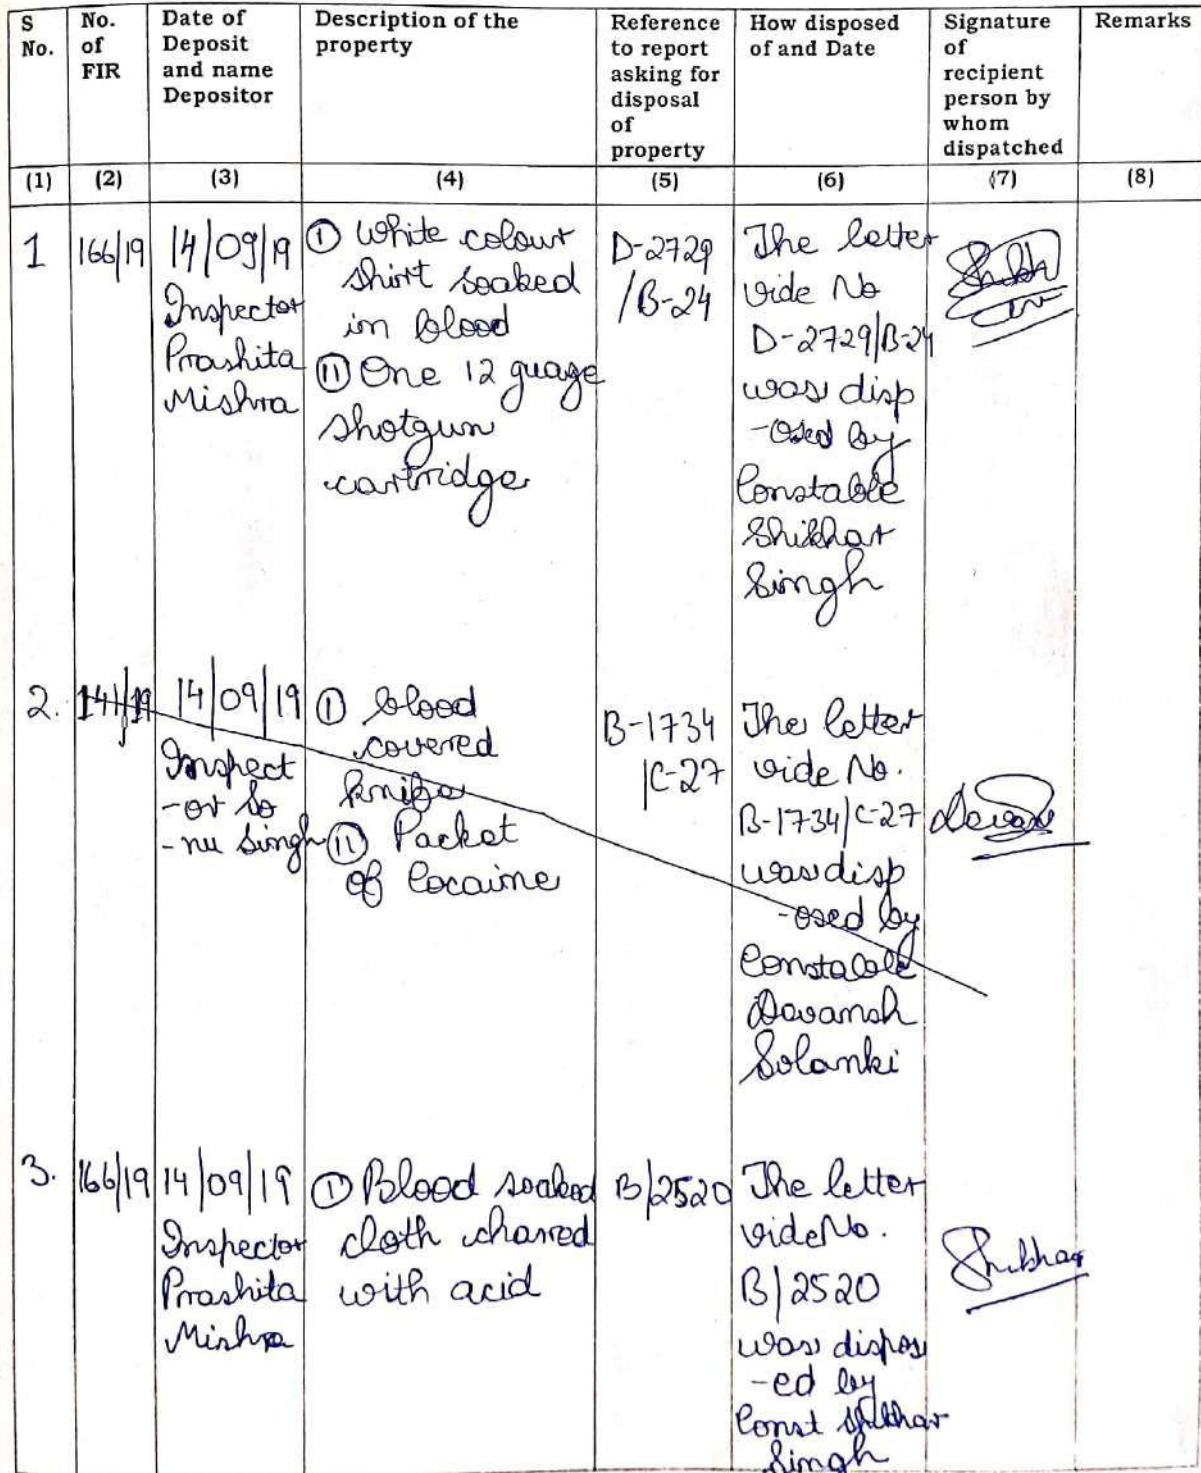 S No.
No. of FIR
Date of Deposit and name Depositor
Description of the property
Reference to report asking for disposal of property
How disposed of and Date
Signature of recipient person by whom dispatched
Remarks
(1) (2) (3) (4) (5) (6) (7) (8)
1
166/19
14/09/19
Inspector
Prashita
Mishra
(I) White colour
shirt soaked
in blood
(II) One 12 guage
shotgun
cartridge
D-2729
/B-24
The letter
vide No
D-2729/B-24
was disp
-osed by
Constable
Shikhar
Singh
2.
141/19
14/09/19
Inspect
-or So
-nu Singh
(I) blood
covered
knife
(II) Packet
of Cocaine
B-1734
/C-27
The letter
vide No.
B-1734/C-27
was disp
-osed by
Constable
Davansh
Solanki
3.
166/19
14/09/19
Inspector
Prashita
Mishra
(I) Blood soaked
cloth charred
with acid
B/2520
The letter
vide No.
B/2520
was dispos
-ed by
Const Shikhar
Singh
Shikhar